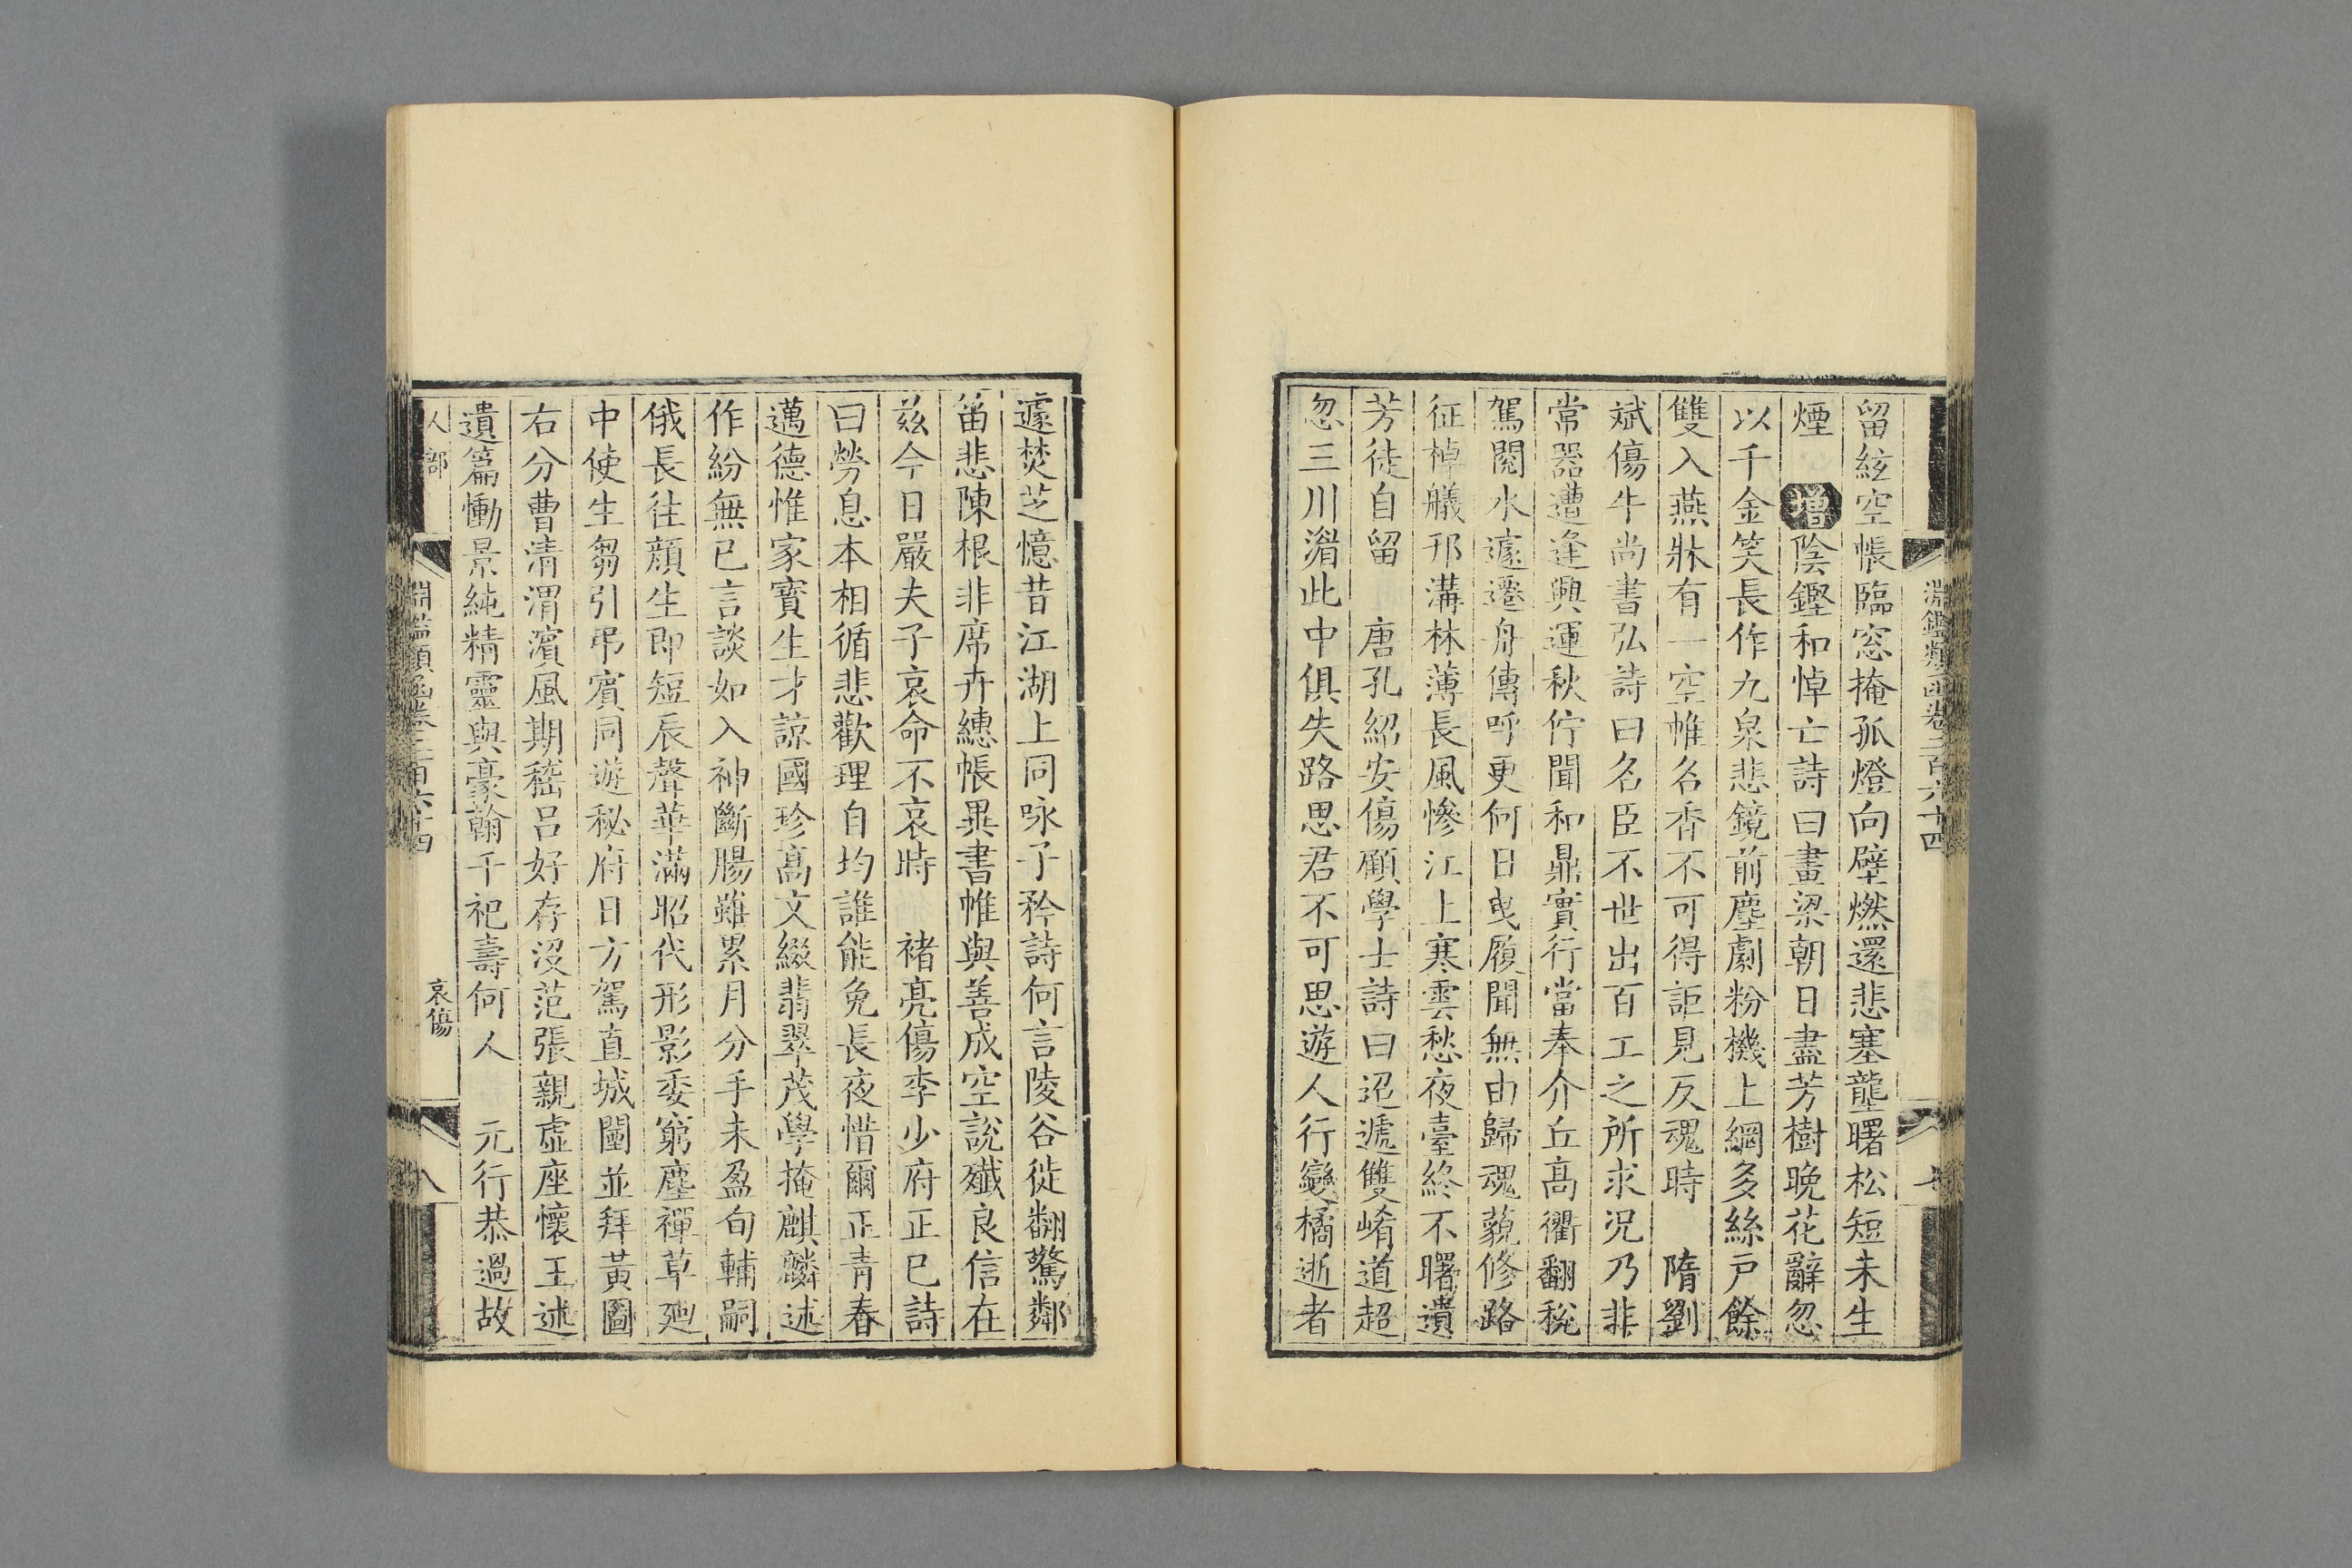 淵鑑類函卷二百六十四
七
留絃空帳臨窓掩孤燈向壁燃還悲塞壟曙松短未生
煙 增陰鏗和悼亡詩曰畫梁朝日盡芳樹晚花辭忽
以千金笑長作九泉悲鏡前塵劇粉機上網多絲戸餘
雙入燕牀有一空帷名香不可得詎見反魂時 隋劉
斌傷牛尚書弘詩曰名臣不世出百工之所求況乃非
常器遭逢興運秋佇聞和鼎實行當奉介丘高衢翻稅
駕閱水遽遷舟傳呼更何日曳履聞無由歸魂藐修路
征棹艤邗溝林薄長風慘江上寒雲愁夜臺終不曙遺
芳徒自留 唐孔紹安傷顧學士詩曰迢遞雙崤道超
忽三川湄此中俱失路思君不可思遊人行變橘逝者
遽焚芝憶昔江湖上同咏子矜詩何言陵谷徙翻驚鄰
笛悲陳根非席卉繐帳異書帷與善成空說殲良信在
玆今日嚴夫子哀命不哀時 褚亮傷李少府正己詩
曰勞息本相循悲歡理自均誰能免長夜惜爾正青春
邁德惟家寶生才諒國珍高文綴翡翠茂學掩麒麟述
作紛無已言談如入神斷腸雖累月分手未盈旬輔嗣
俄長往顔生即短辰聲華滿昭代形影委窮塵禪草𢌞
中使生芻引弔賓同遊秘府日方駕直城闉並拜黃圖
右分曹清渭濱風期嵇呂好存沒范張親虛座懷王述
遺篇慟景純精靈與豪翰千祀壽何人 元行恭過故
人部
淵鑑類函卷二百六十四
哀傷
八